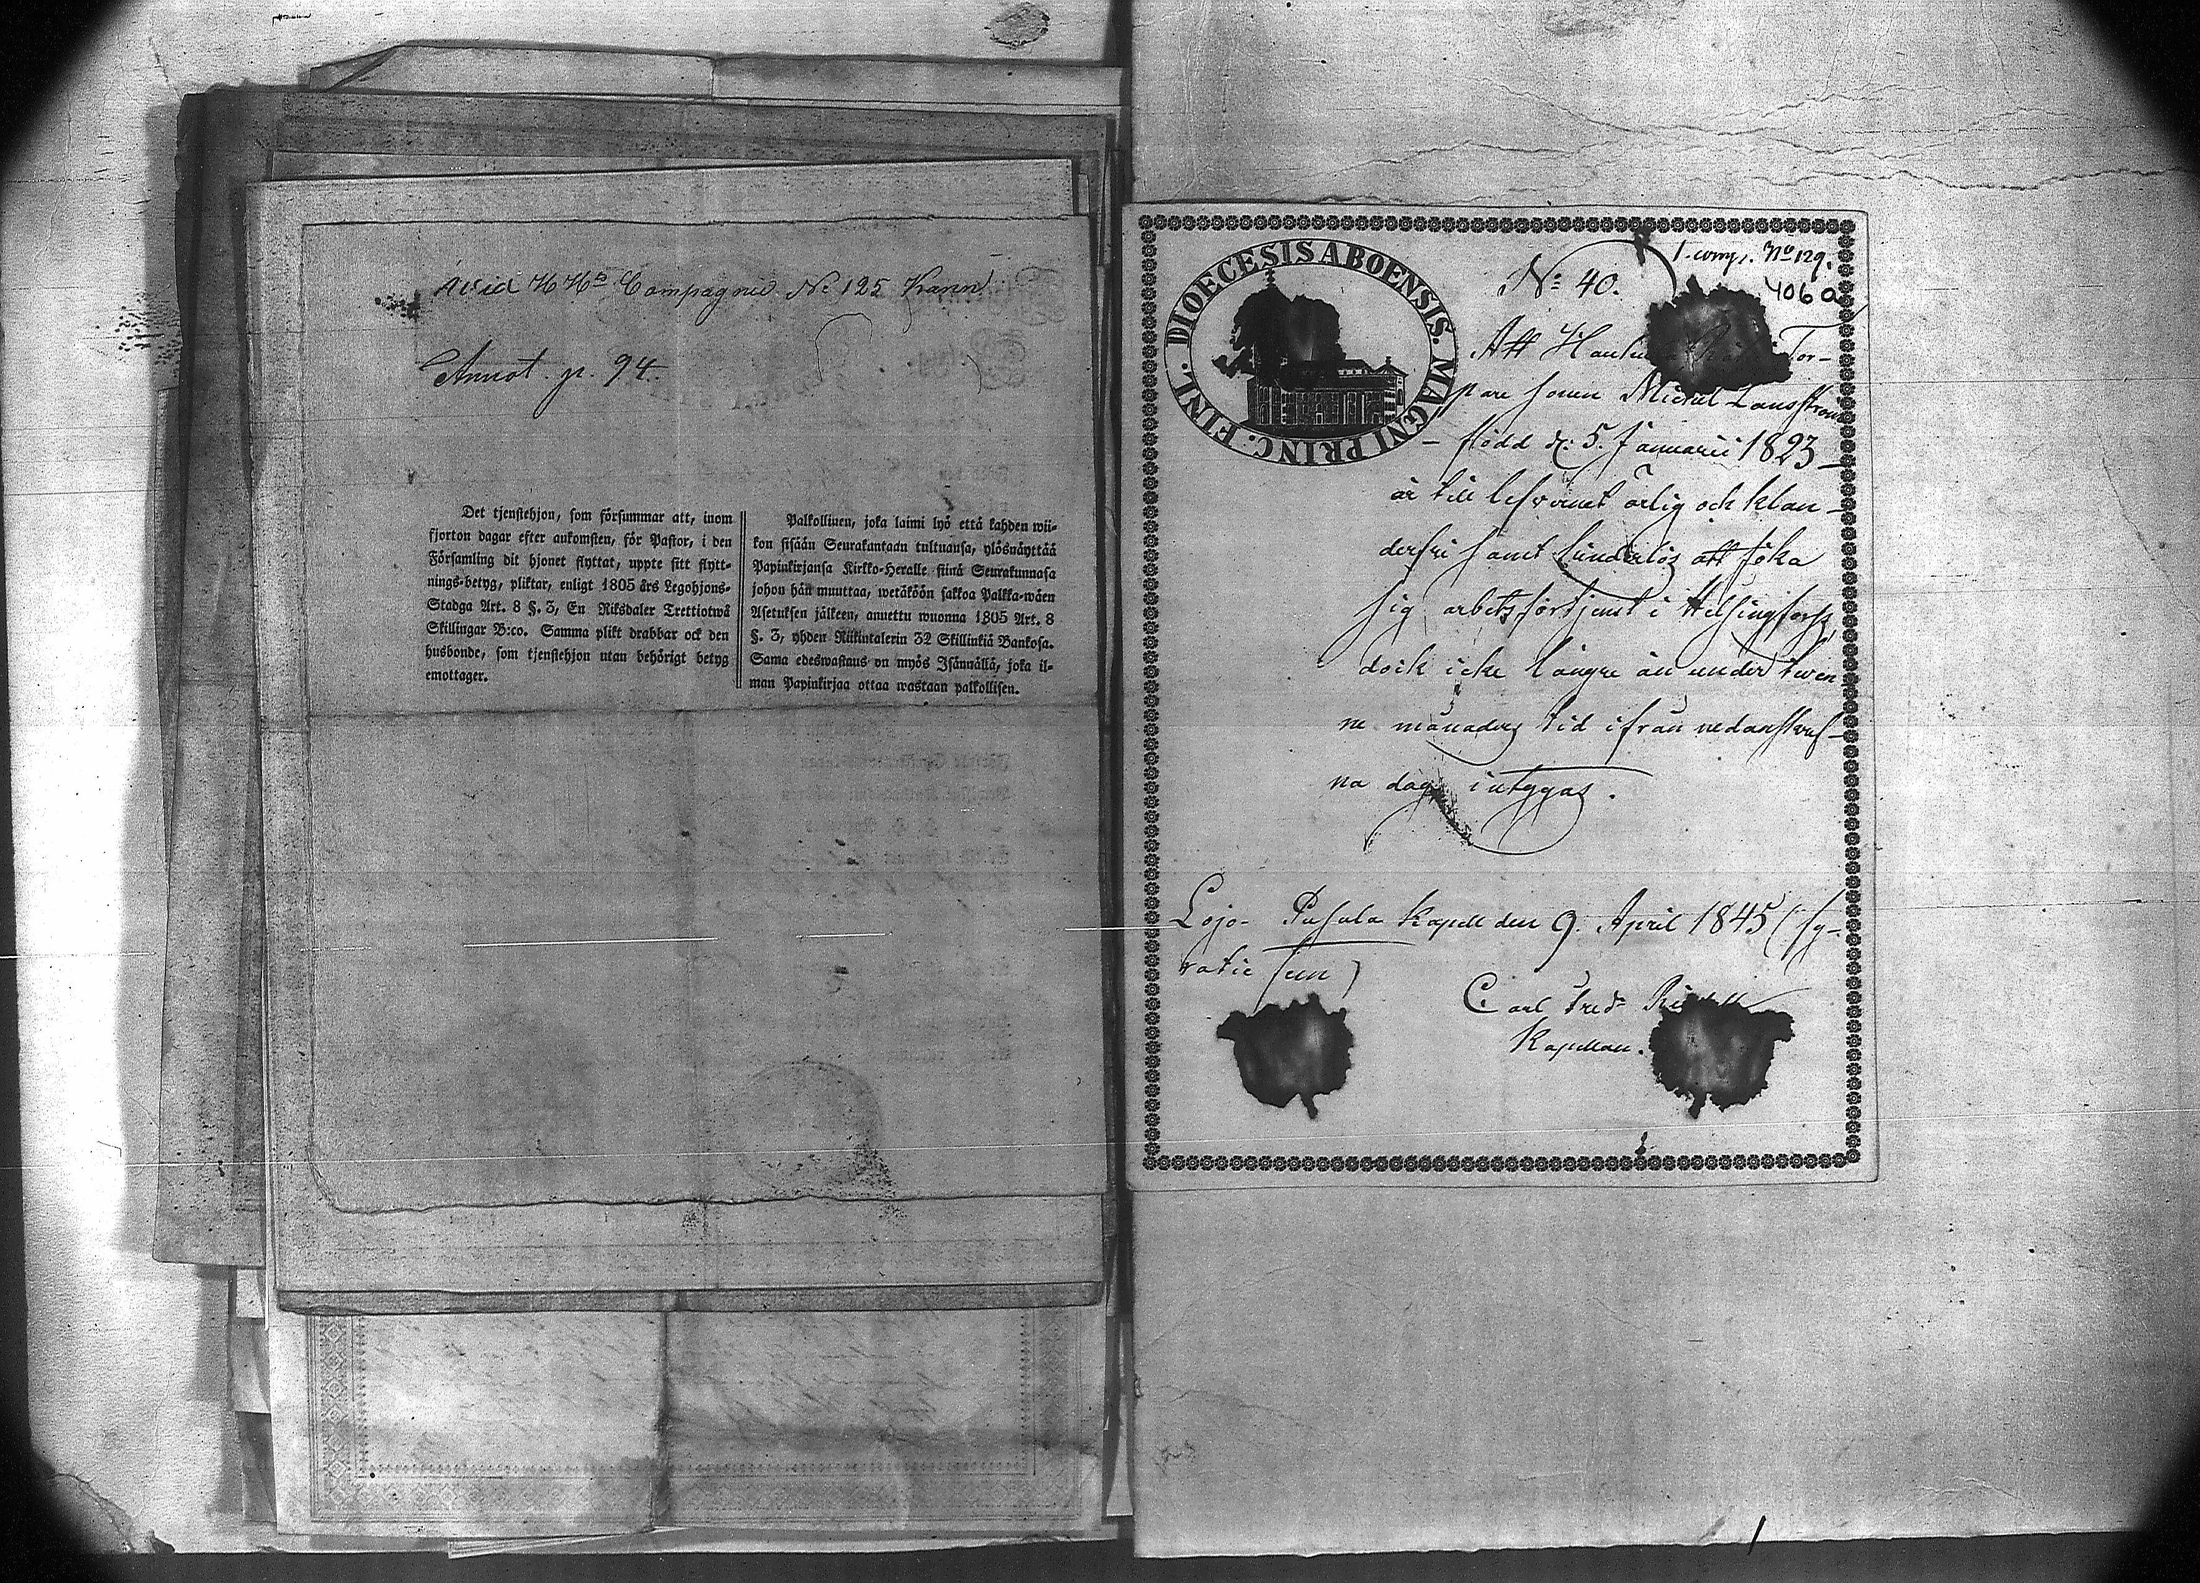 Avid H Hs Compagnie No 125 Kann
Annot. p. 94.
Det tjenstehjon, som försummar att, inom
fjorton dagar efter ankomsten, för Pastor, i den
Församling dit hjonet flyttat, uppte sitt flytt-
nings-betyg, pliktar, enligt 1805 års Legohjons-
Stadga Art. 8 §. 3, En Riksdaler Trettiotwå
Skillingar B:co. Samma plikt drabbar ock den
husbonde, som tjenstehjon utan behörigt betyg
emottager.
Palkollinen, joka laimi lyö että kahden wii-
kon sisään Seurakuntaan tultuansa, ylösnäyttää
Papinkirjansa Kirkko-Heralle siinä Seurakunnasa
johon hän muuttaa, wetäköön sakkoa Palkka-wäen
Asetuksen jälkeen, annettu wuonna 1805 Art. 8
§. 3, yhden Riikintalerin 32 Skillinkiä Bankosa.
Sama edeswastaus on myös Isännällä, joka il-
man Papinkirjaa ottaa wastaan palkollisen.
DIOECESIS ABOENSIS. MAGNI PRINC. FINL.
1. comp. No 129.
No: 40.
406 a
Att Tor-
pare sonen Michel
född d: 5. Januarii 1823
är till lefvernet ärlig och klan-
derfri samt hinderlös att söka
sig arbetsförtjenst i Helsingfors,
dock icke längre än under tven-
ne månaders tid ifrån nedanskref-
na dag, intygas.
Lojo- Pusula Kapell den 9. April 1845 (Gratis
Carl Fredr
Kapellan.